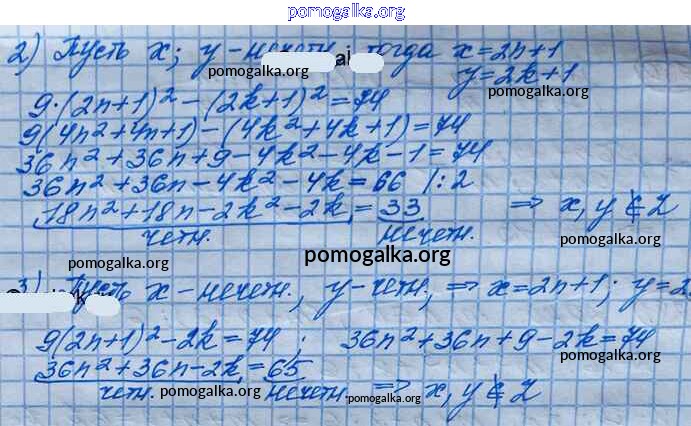 pomogalka.org
2) Пусть x; y - нечетн. тогда x=2n+1
y=2k+1
pomogalka.org
pomogalka.org
9·(2n+1)² - (2k+1)² = 74
9(4n²+4n+1) - (4k²+4k+1) = 74
36n²+36n+9-4k²-4k-1 = 74
36n²+36n-4k²-4k = 66 /:2
18n²+18n-2k²-2k = 33 => x, y ∉ Z
четн. нечетн.
pomogalka.org
pomogalka.org
pomogalka.org
3) Пусть x - нечетн., y - четн, => x=2n+1; y=2
9(2n+1)² - 2k = 74; 36n²+36n+9-2k = 74
pomogalka.org
36n²+36n-2k = 65
четн. нечетн. => x, y ∉ Z
pomogalka.org
pomogalka.org